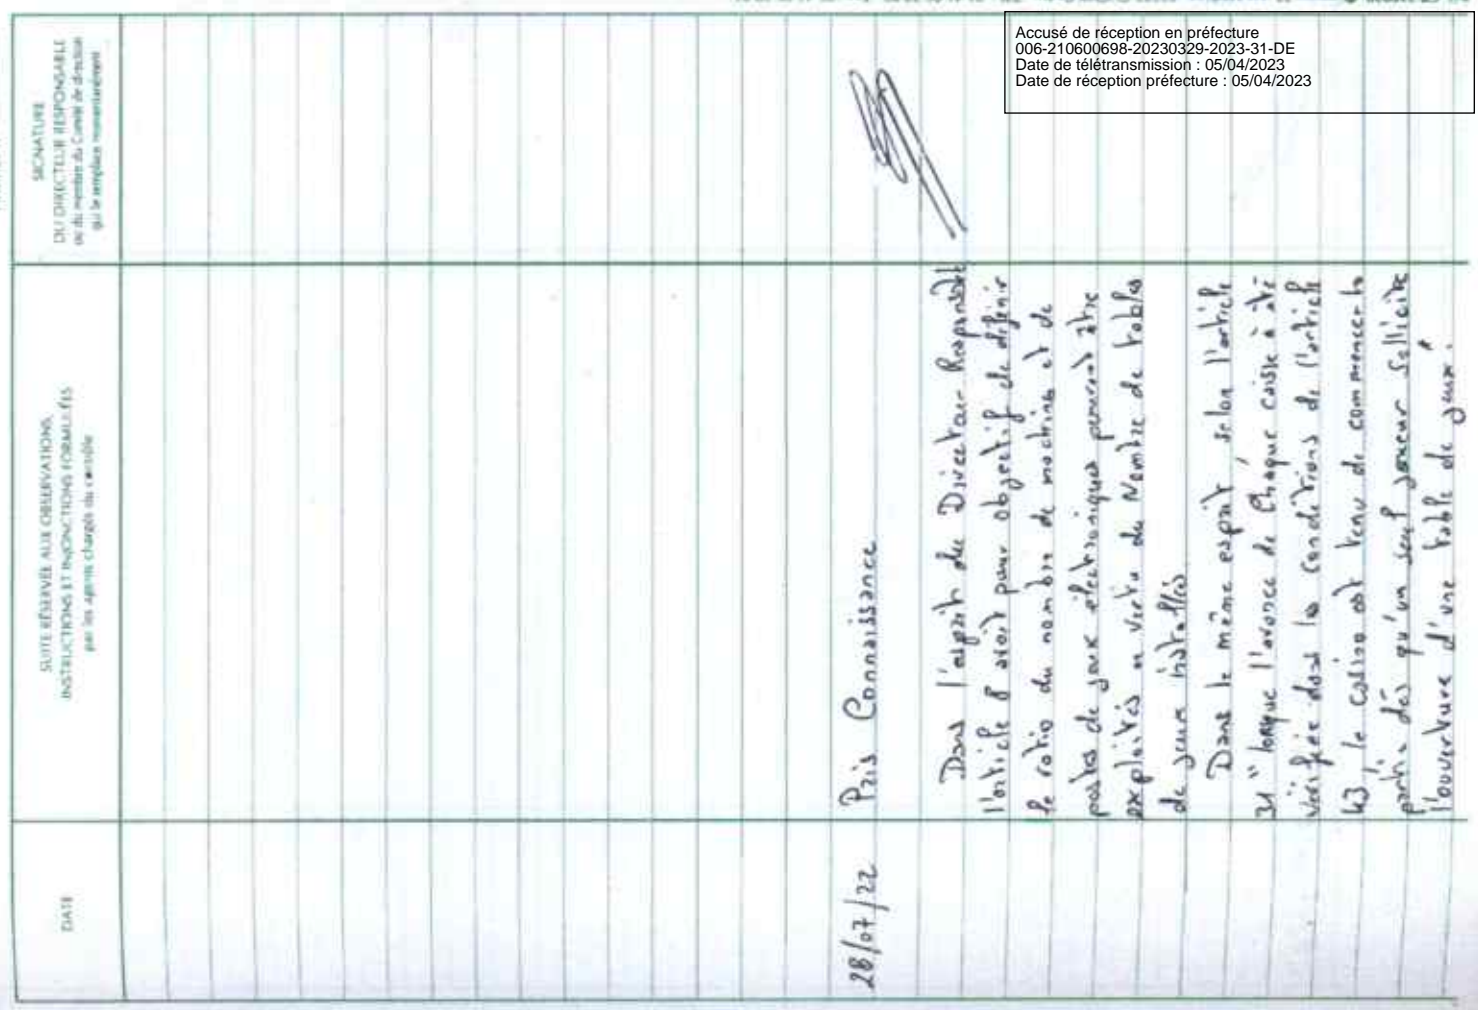 Accusé de réception en préfecture
006-210600698-20230329-2023-31-DE
Date de télétransmission : 05/04/2023
Date de réception préfecture : 05/04/2023
DATE
SUITE RÉSERVÉE AUX OBSERVATIONS,
INSTRUCTIONS ET INJONCTIONS FORMULÉES
par les agents chargés du contrôle
SIGNATURE
DU DIRECTEUR RESPONSABLE
ou du membre du Comité de direction
qui le remplace momentanément
28/07/22
Pris Connaissance
Dans l'esprit du Directeur Responsable
l'article 8 avait pour objectif de définir
le ratio du nombre de machines et de
postes de jeux électroniques pouvant être
exploités en vertu du Nombre de tables
de jeux installés
Dans le même esprit selon l'article
31 "lorsque l'avance de Chaque caisse a été
vérifiée dans les conditions de l'article
43, le casino est tenu de commencer la
partie dès qu'un seul joueur sollicite
l'ouverture d'une table de jeux.